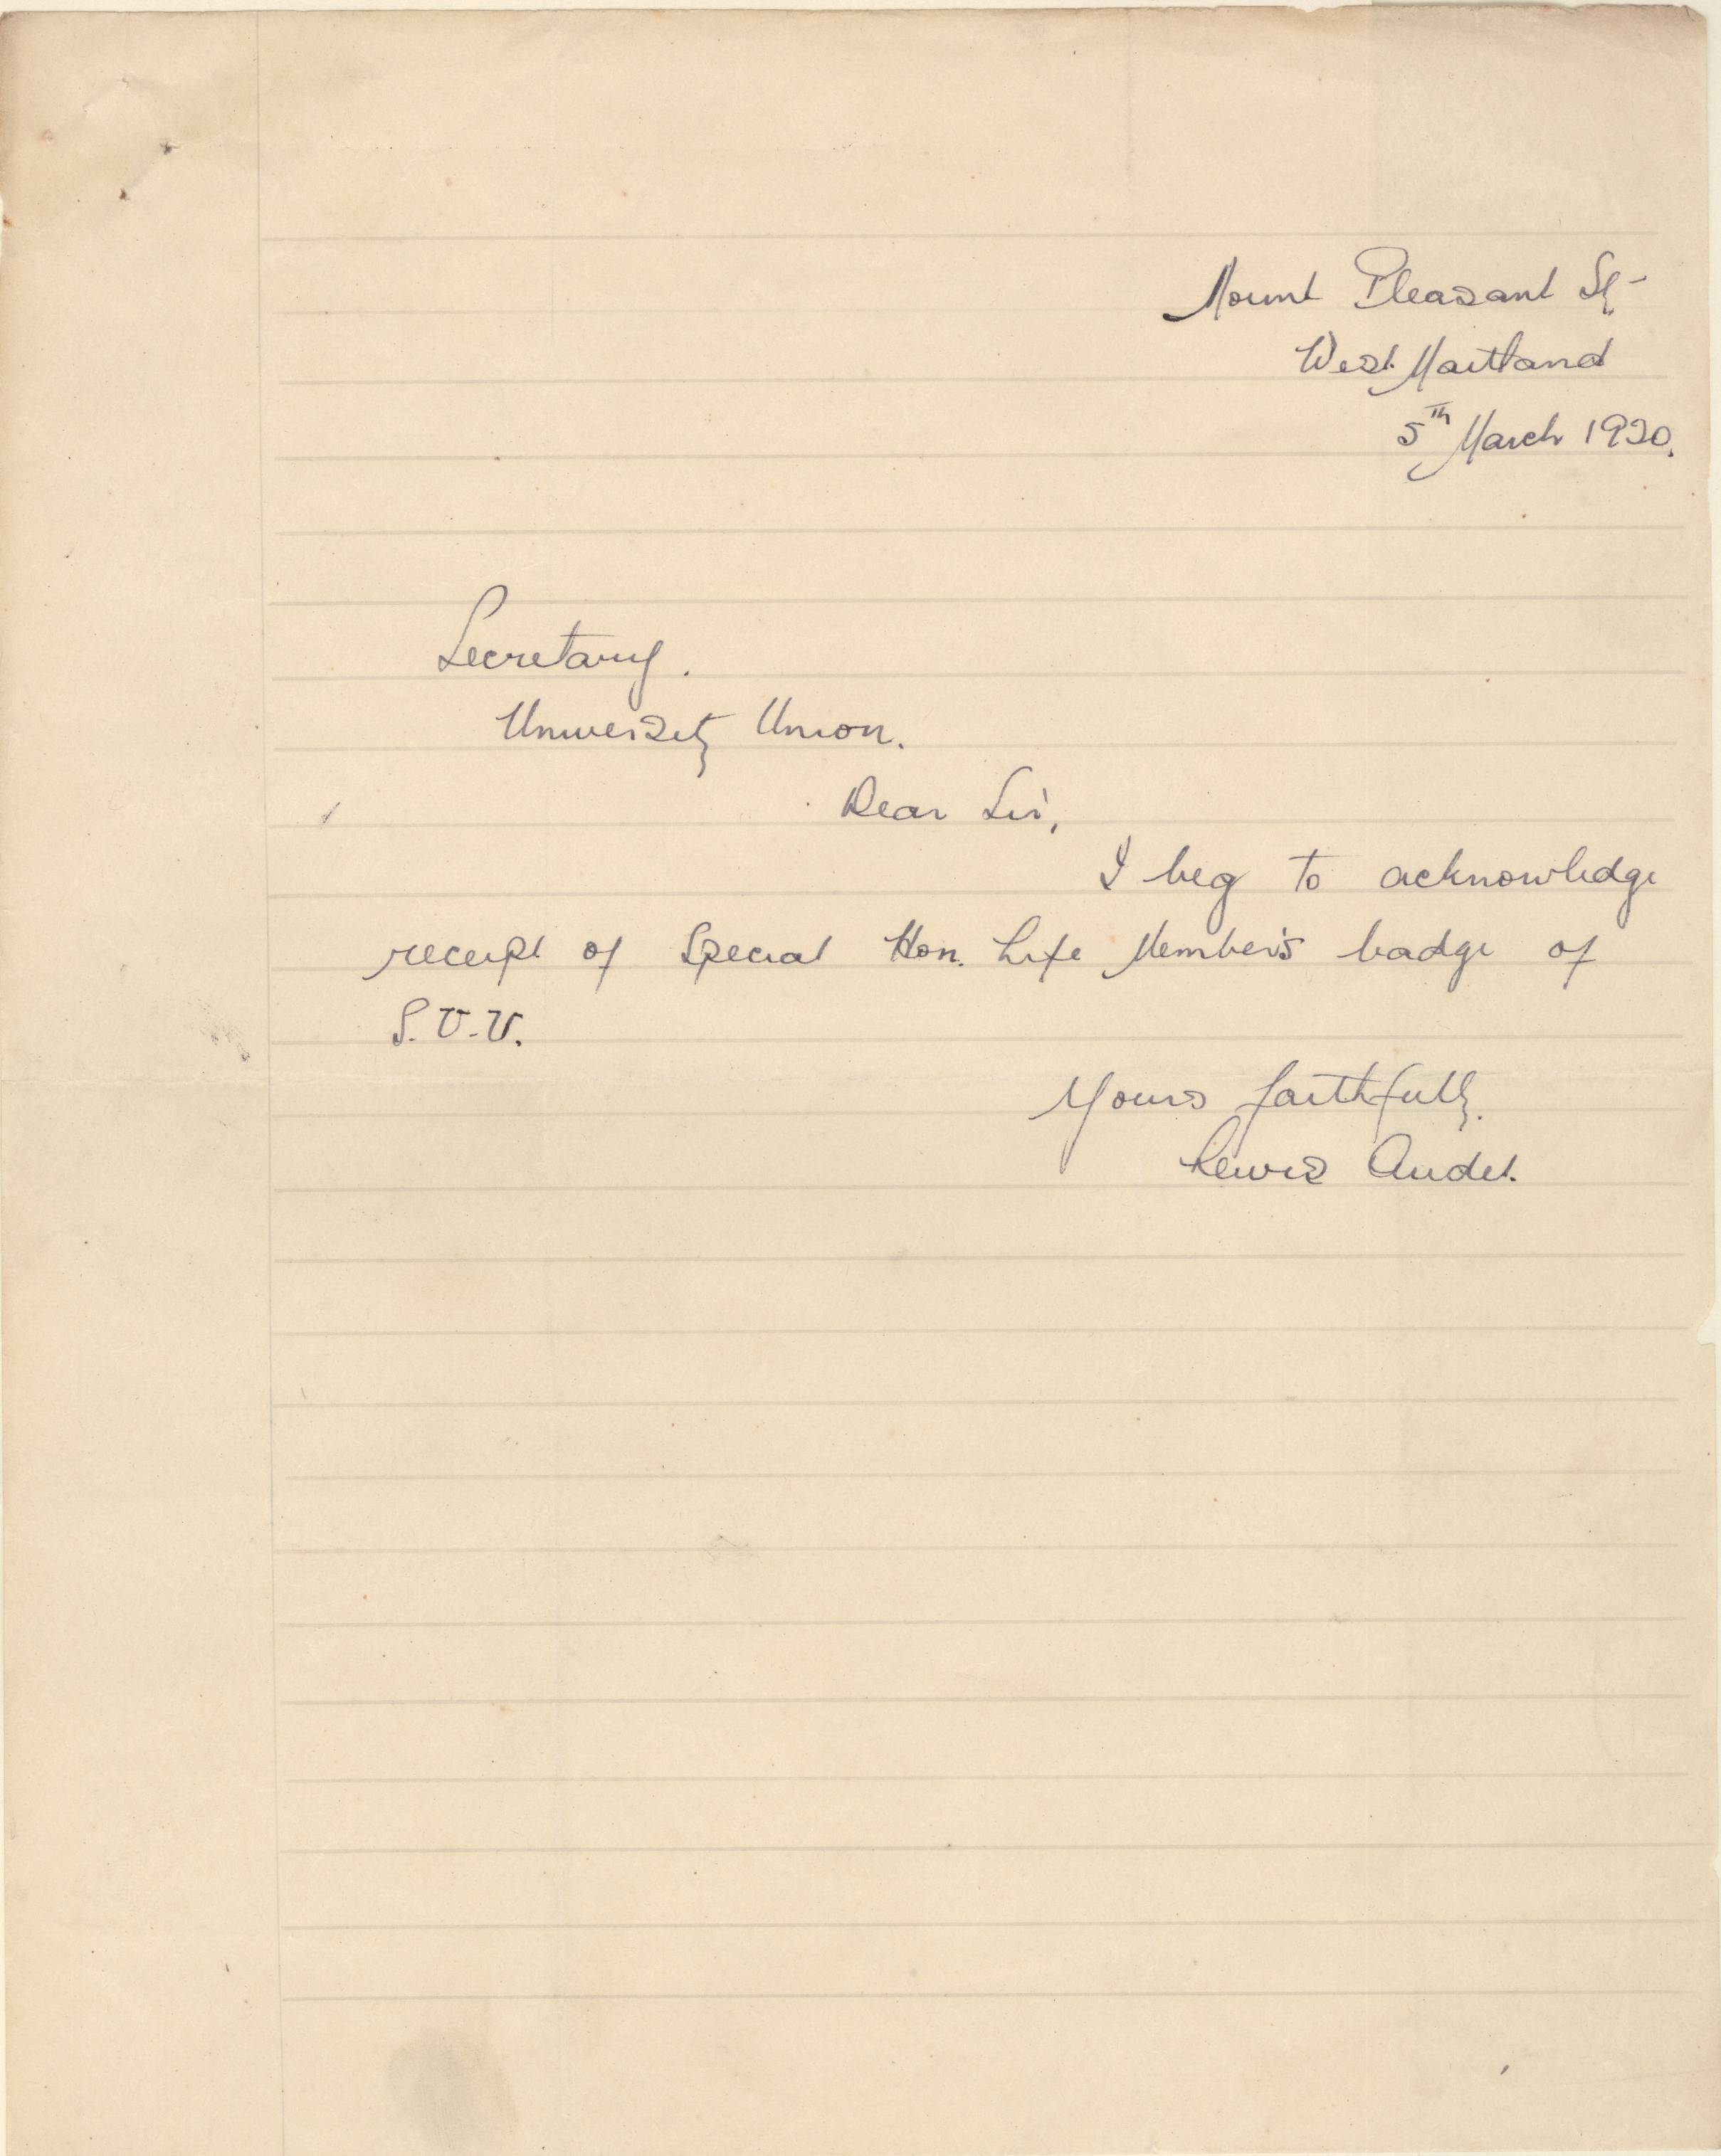 Mount Pleasant St-
West Maitland
5th March 1920.
Secretary.
University Union.
Dear Sir,
I beg to acknowledge
receipt of Special Hon. Life Member's badge of
S.U.U.
Yours faithfully.
Lewis